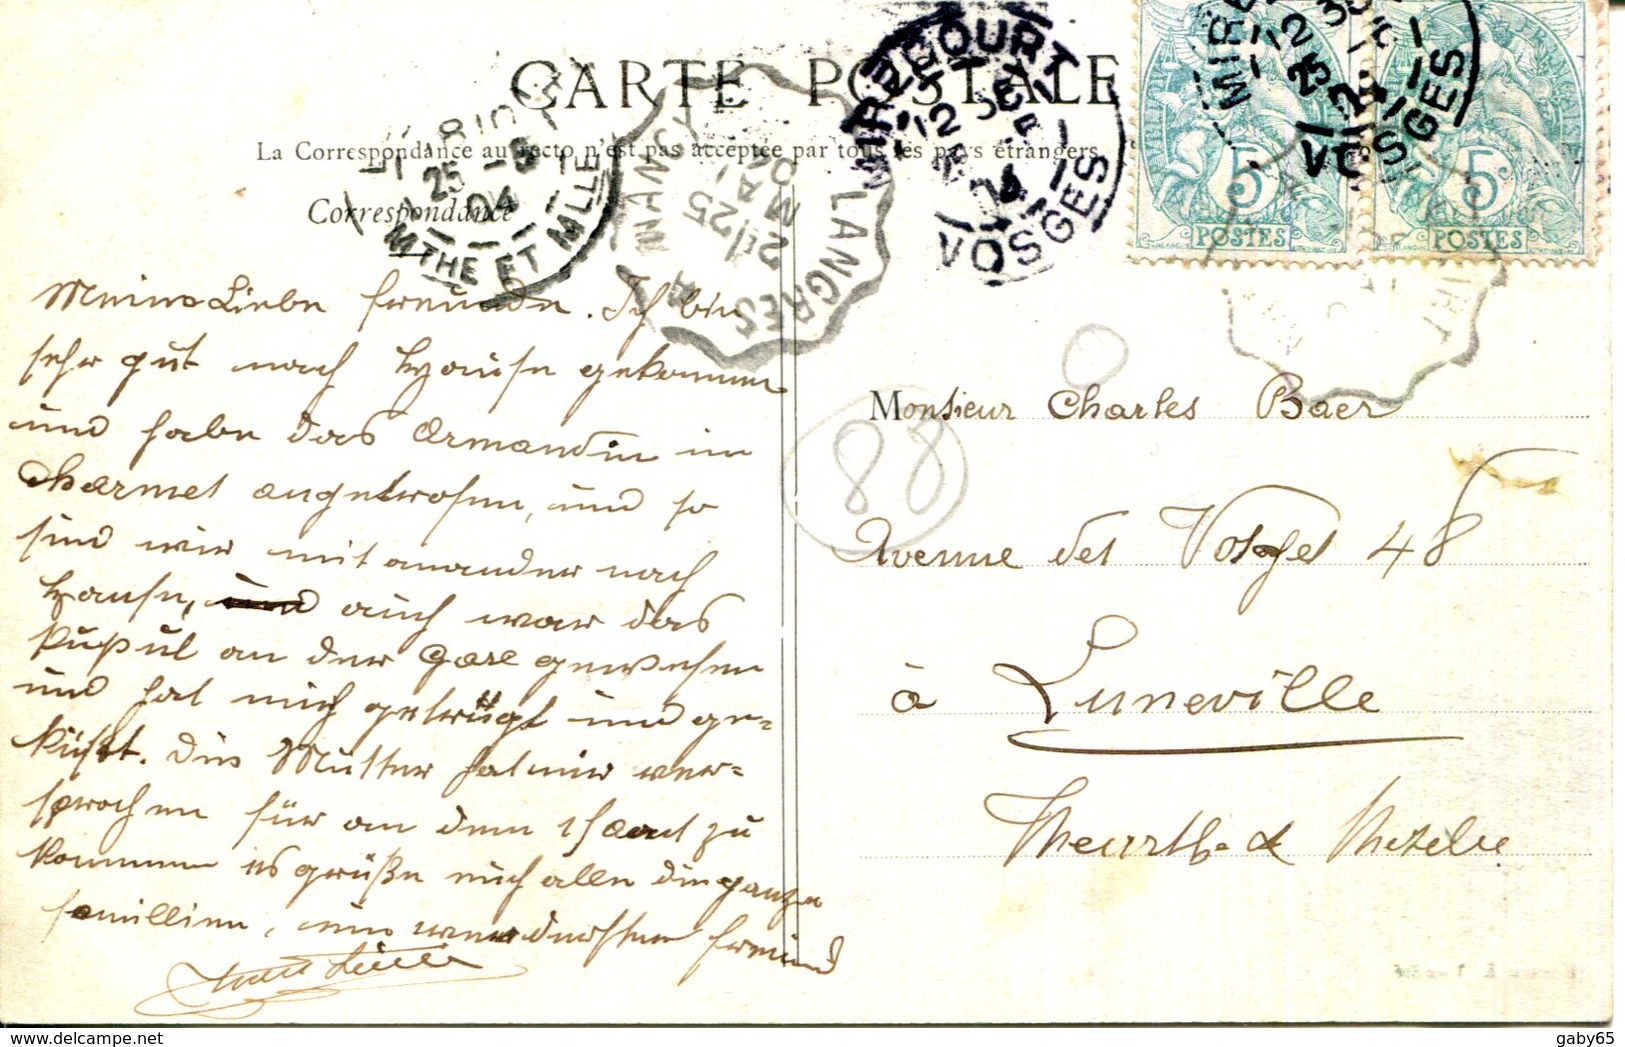 CARTE POSTALE
La Correspondance au recto n'est pas acceptée par tous les pays étrangers
Correspondance
25 -5
04
MTHE ET MLLE
LANGRES A
NANCY
25 MAI
04
MIRECOURT
VOSGES
MIRE
25
VOSGES
5
POSTES
5
POSTES
Meine Liebe freunde. Ich bin
sehr gut nach Hause gekommen
und habe das Armandin in
Charmes angetrofen, und so
sind wir mit anander nach
Hause, und auch war das
an der Gare gewesen
und hat mich und ge=
küßt. Die Mutter hat mir ver=
sprochen für an dem zu
kommen es grüße euch alle die ganze
familien, ein freund
88
Monsieur Charles Baer
Avenue des Vosges 48
à Luneville
Meurthe & Moselle
gaby65